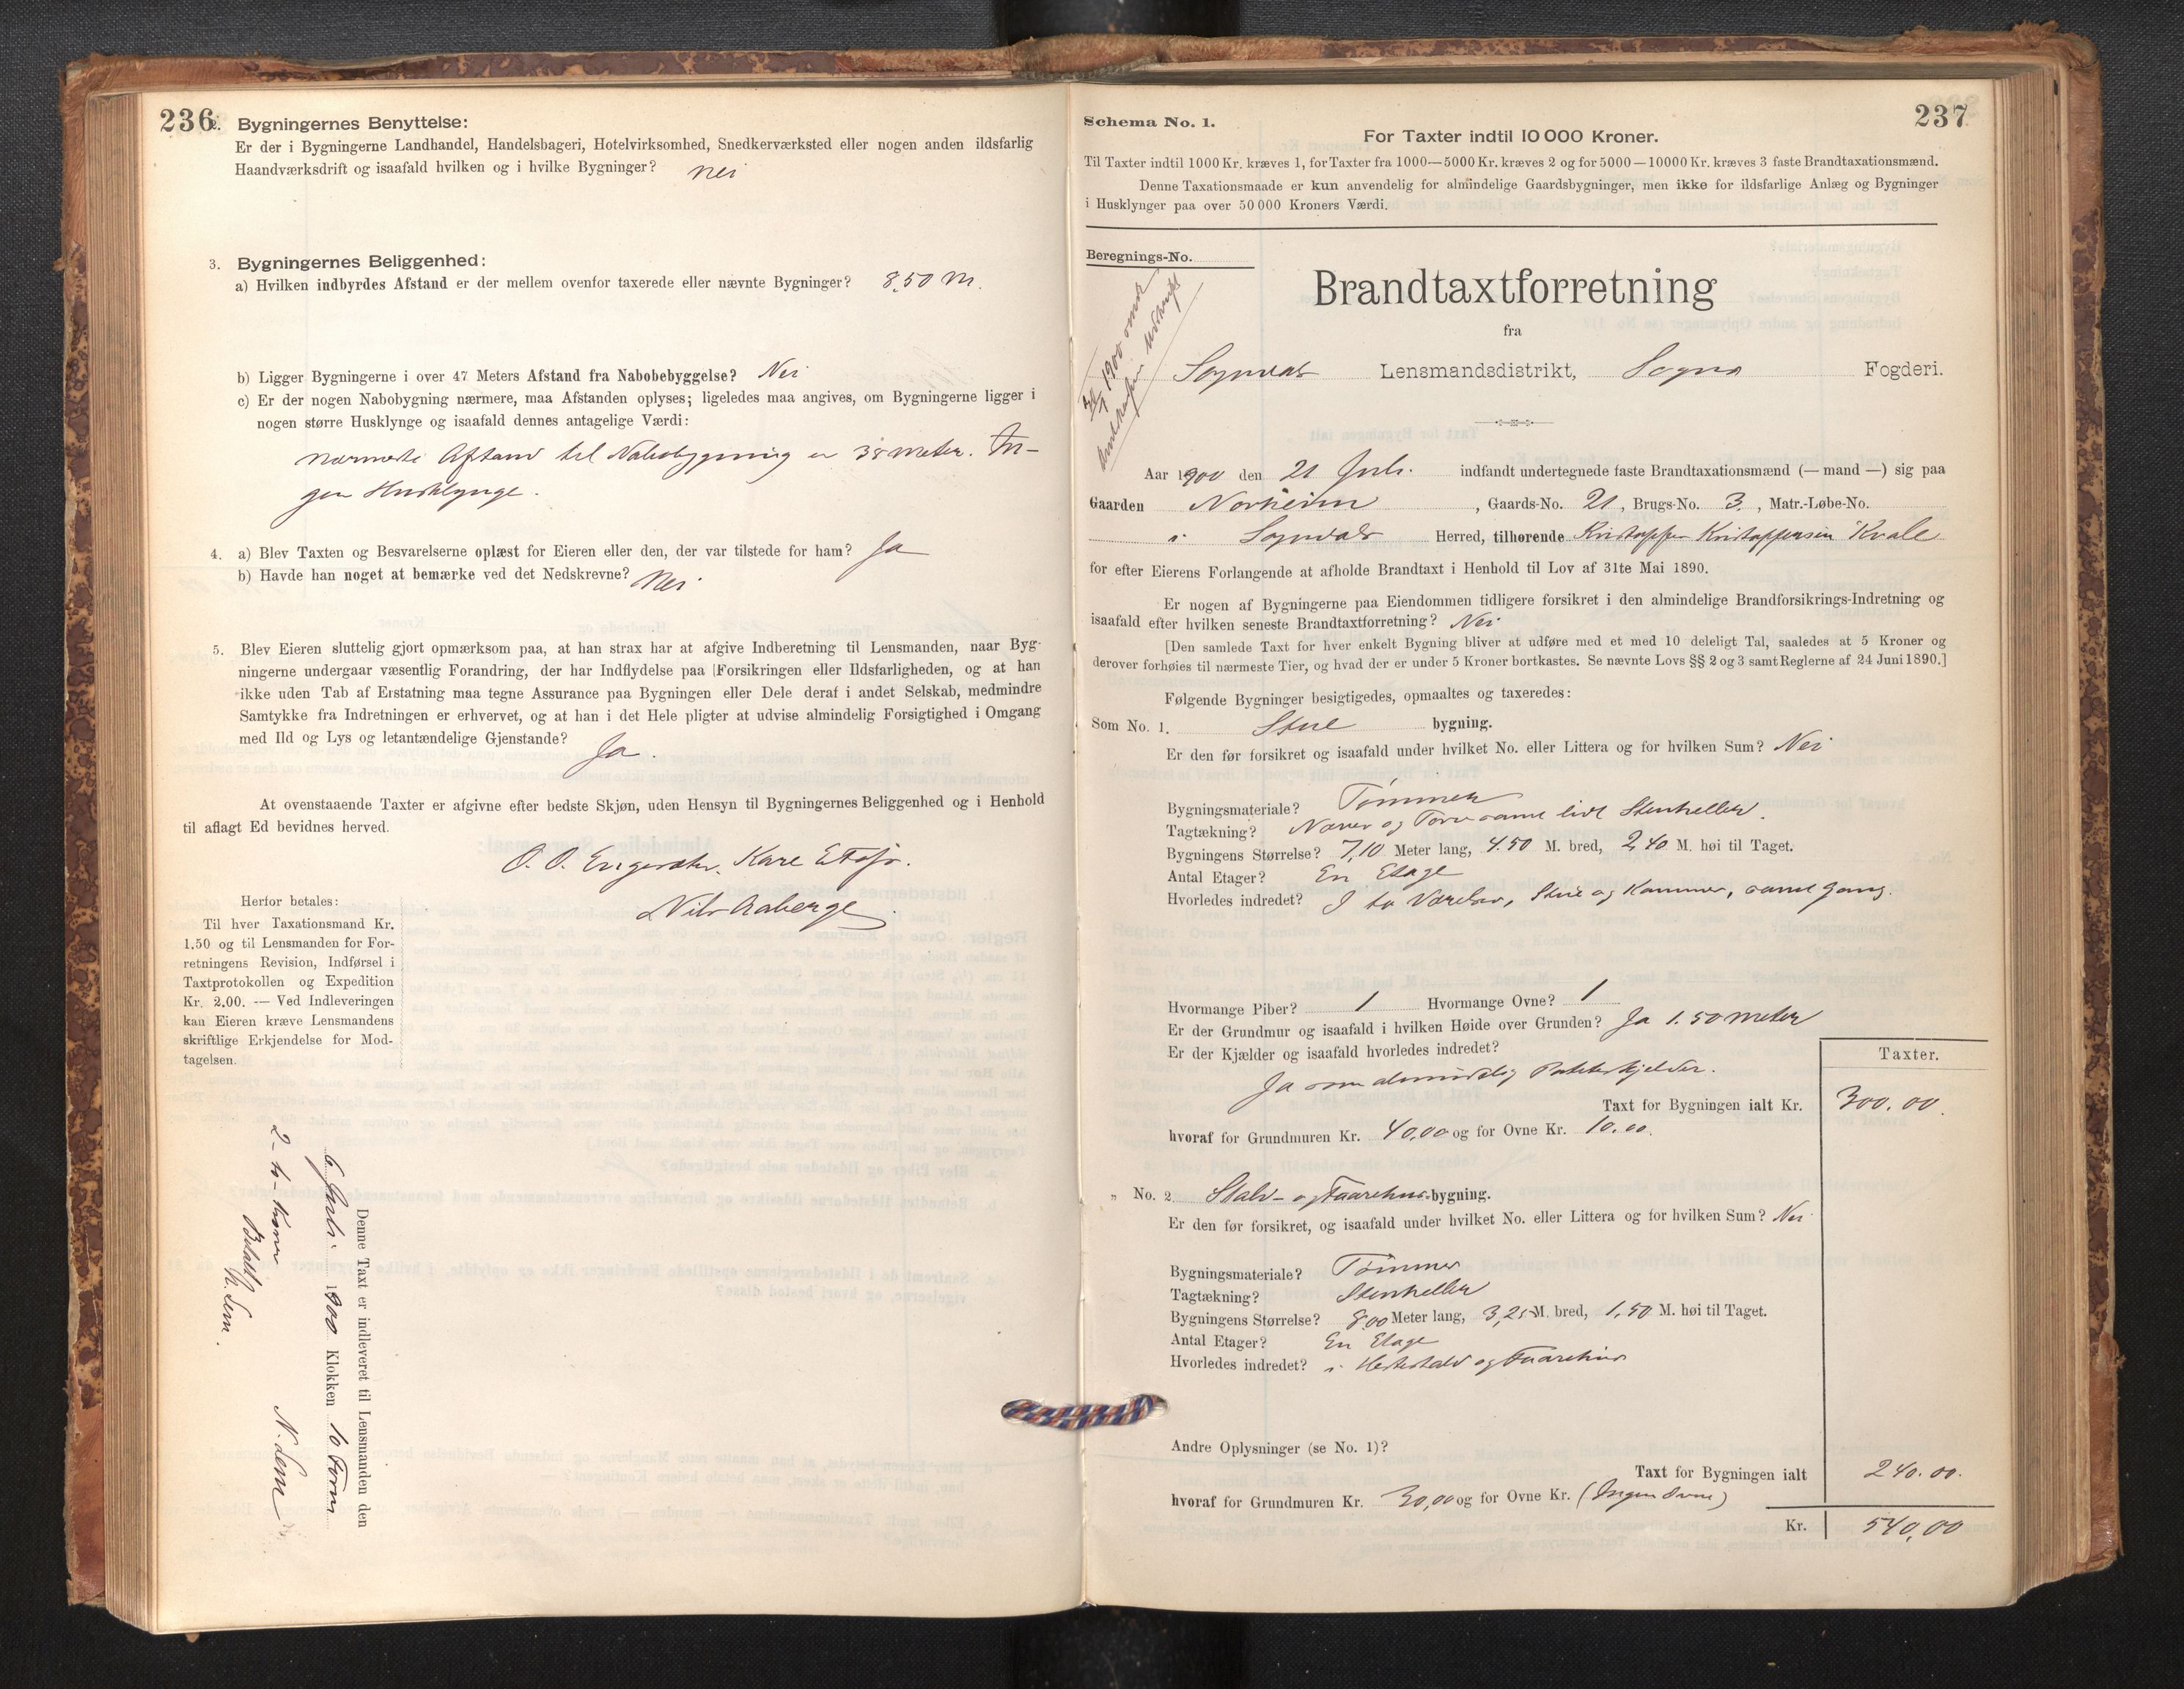 236
2. Bygningernes Benyttelse:
Er der i Bygningerne Landhandel, Handelsbageri, Hotelvirksomhed, Snedkerværksted eller nogen anden ildsfarlig
Haandværksdrift og isaafald hvilken og i hvilke Bygninger? Nei
3. Bygningernes Beliggenhed:
a) Hvilken indbyrdes Afstand er der mellem ovenfor taxerede eller nævnte Bygninger? 8,50 M.
b) Ligger Bygningerne i over 47 Meters Afstand fra Nabobebyggelse? Nei
c) Er der nogen Nabobygning nærmere, maa Afstanden oplyses; ligeledes maa angives, om Bygningerne ligger i
nogen større Husklynge og isaafald dennes antagelige Værdi:
Nærmeste Afstand til Nabobygning er 38 meter. In-
gen Husklynge.
4. a) Blev Taxten og Besvarelserne oplæst for Eieren eller den, der var tilstede for ham? Ja
b) Havde han noget at bemærke ved det Nedskrevne? Nei
5. Blev Eieren sluttelig gjort opmærksom paa, at han strax har at afgive Indberetning til Lensmanden, naar Byg-
ningerne undergaar væsentlig Forandring, der har Indflydelse paa Forsikringen eller Ildsfarligheden, og at han
ikke uden Tab af Erstatning maa tegne Assurance paa Bygningen eller Dele deraf i andet Selskab, medmindre
Samtykke fra Indretningen er erhvervet, og at han i det Hele pligter at udvise almindelig Forsigtighed i Omgang
med Ild og Lys og letantændelige Gjenstande? Ja.
At ovenstaaende Taxter er afgivne efter bedste Skjøn, uden Hensyn til Bygningernes Beliggenhed og i Henhold
til aflagt Ed bevidnes herved.
O. O. Kare
Nils Aaberge
Herfor betales:
Til hver Taxationsmand Kr.
1.50 og til Lensmanden for For-
retningens Revision, Indførsel i
Taxtprotokollen og Expedition
Kr. 2.00. — Ved Indleveringen
kan Eieren kræve Lensmandens
skriftlige Erkjendelse for Mod-
tagelsen.
Denne Taxt er indleveret til Lensmanden den
6 Juli 1900 Klokken 10 Form
2 - to - Kroner
Betalt
N. Lem.
N. Lem
237
Schema No. 1.
For Taxter indtil 10 000 Kroner.
Til Taxter indtil 1000 Kr. kræves 1, for Taxter fra 1000—5000 Kr. kræves 2 og for 5000—10000 Kr. kræves 3 faste Brandtaxationsmænd.
Denne Taxationsmaade er kun anvendelig for almindelige Gaardsbygninger, men ikke for ildsfarlige Anlæg og Bygninger
i Husklynger paa over 50 000 Kroners Værdi.
Beregnings-No.
1900
Brandtaxtforretning
fra
Sogndals Lensmandsdistrikt, Sogns Fogderi.
Aar 1900 den 21 Juli. indfandt undertegnede faste Brandtaxationsmænd (— mand —) sig paa
Gaarden Norheim, Gaards-No. 21, Brugs-No. 3, Matr.-Løbe-No.
i Sogndals Herred, tilhørende Kristoffer Kristoffersen Kvale
for efter Eierens Forlangende at afholde Brandtaxt i Henhold til Lov af 31te Mai 1890.
Er nogen af Bygningerne paa Eiendommen tidligere forsikret i den almindelige Brandforsikrings-Indretning og
isaafald efter hvilken seneste Brandtaxtforretning? Nei
[Den samlede Taxt for hver enkelt Bygning bliver at udføre med et med 10 deleligt Tal, saaledes at 5 Kroner og
derover forhøies til nærmeste Tier, og hvad der er under 5 Kroner bortkastes. Se nævnte Lovs §§ 2 og 3 samt Reglerne af 24 Juni 1890.]
Følgende Bygninger besigtigedes, opmaaltes og taxeredes:
Som No. 1. Stue bygning.
Er den før forsikret og isaafald under hvilket No. eller Littera og for hvilken Sum? Nei
Bygningsmateriale? Tømmer
Tagtækning? Næver og Torv samt lidt Stenheller.
Bygningens Størrelse? 7,10 Meter lang, 4.50 M. bred, 2,40 M. høi til Taget.
Antal Etager? En Etage
Hvorledes indredet? I to Værelser, Stue og Kammer, samt Gang.
Hvormange Piber? 1 Hvormange Ovne? 1
Er der Grundmur og isaafald i hvilken Høide over Grunden? Ja 1.50 meter
Er der Kjælder og isaafald hvorledes indredet?
Ja som almindelig Potetkjelder.
Taxter.
Taxt for Bygningen ialt Kr. 300.00.
hvoraf for Grundmuren Kr. 40,00 og for Ovne Kr. 10.00.
„ No. 2 Stald- og Faarehus-bygning.
Er den før forsikret, og isaafald under hvilket No. eller Littera og for hvilken Sum? Nei
Bygningsmateriale? Tømmer
Tagtækning? Stenheller
Bygningens Størrelse? 8,00 Meter lang, 3,25 M. bred, 1,50 M. høi til Taget.
Antal Etager? En Etage
Hvorledes indredet? i Hestestald og Faarehus
Andre Oplysninger (se No. 1)?
Taxt for Bygningen ialt 240.00.
hvoraf for Grundmuren Kr. 30,00 og for Ovne Kr. (Ingen Ovne)
Kr. 540,00